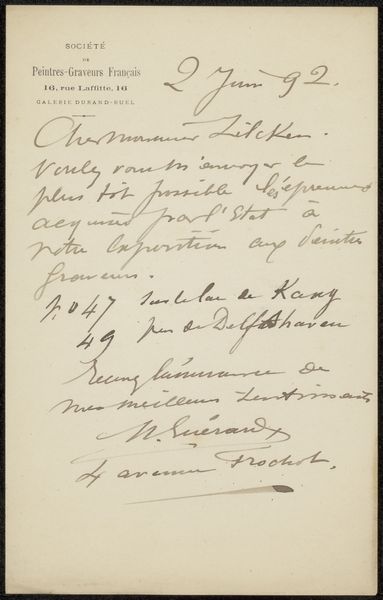 SOCIÉTÉ
DE
Peintres-Graveurs Français
16, rue Laffitte, 16
GALERIE DURAND-RUEL
2 Juin 92.
Cher Monsieur Zilcken.
Voulez vous m'envoyer le
plus tôt possible les épreuves
acquises par l'Etat à
notre Exposition aux Peintres
Graveurs.
No 47 sur le lac de Kaag
49 près de Delfshaven
Recevez l'assurance de
mes meilleurs sentiments
H. Guérard
4 avenue Frochot.